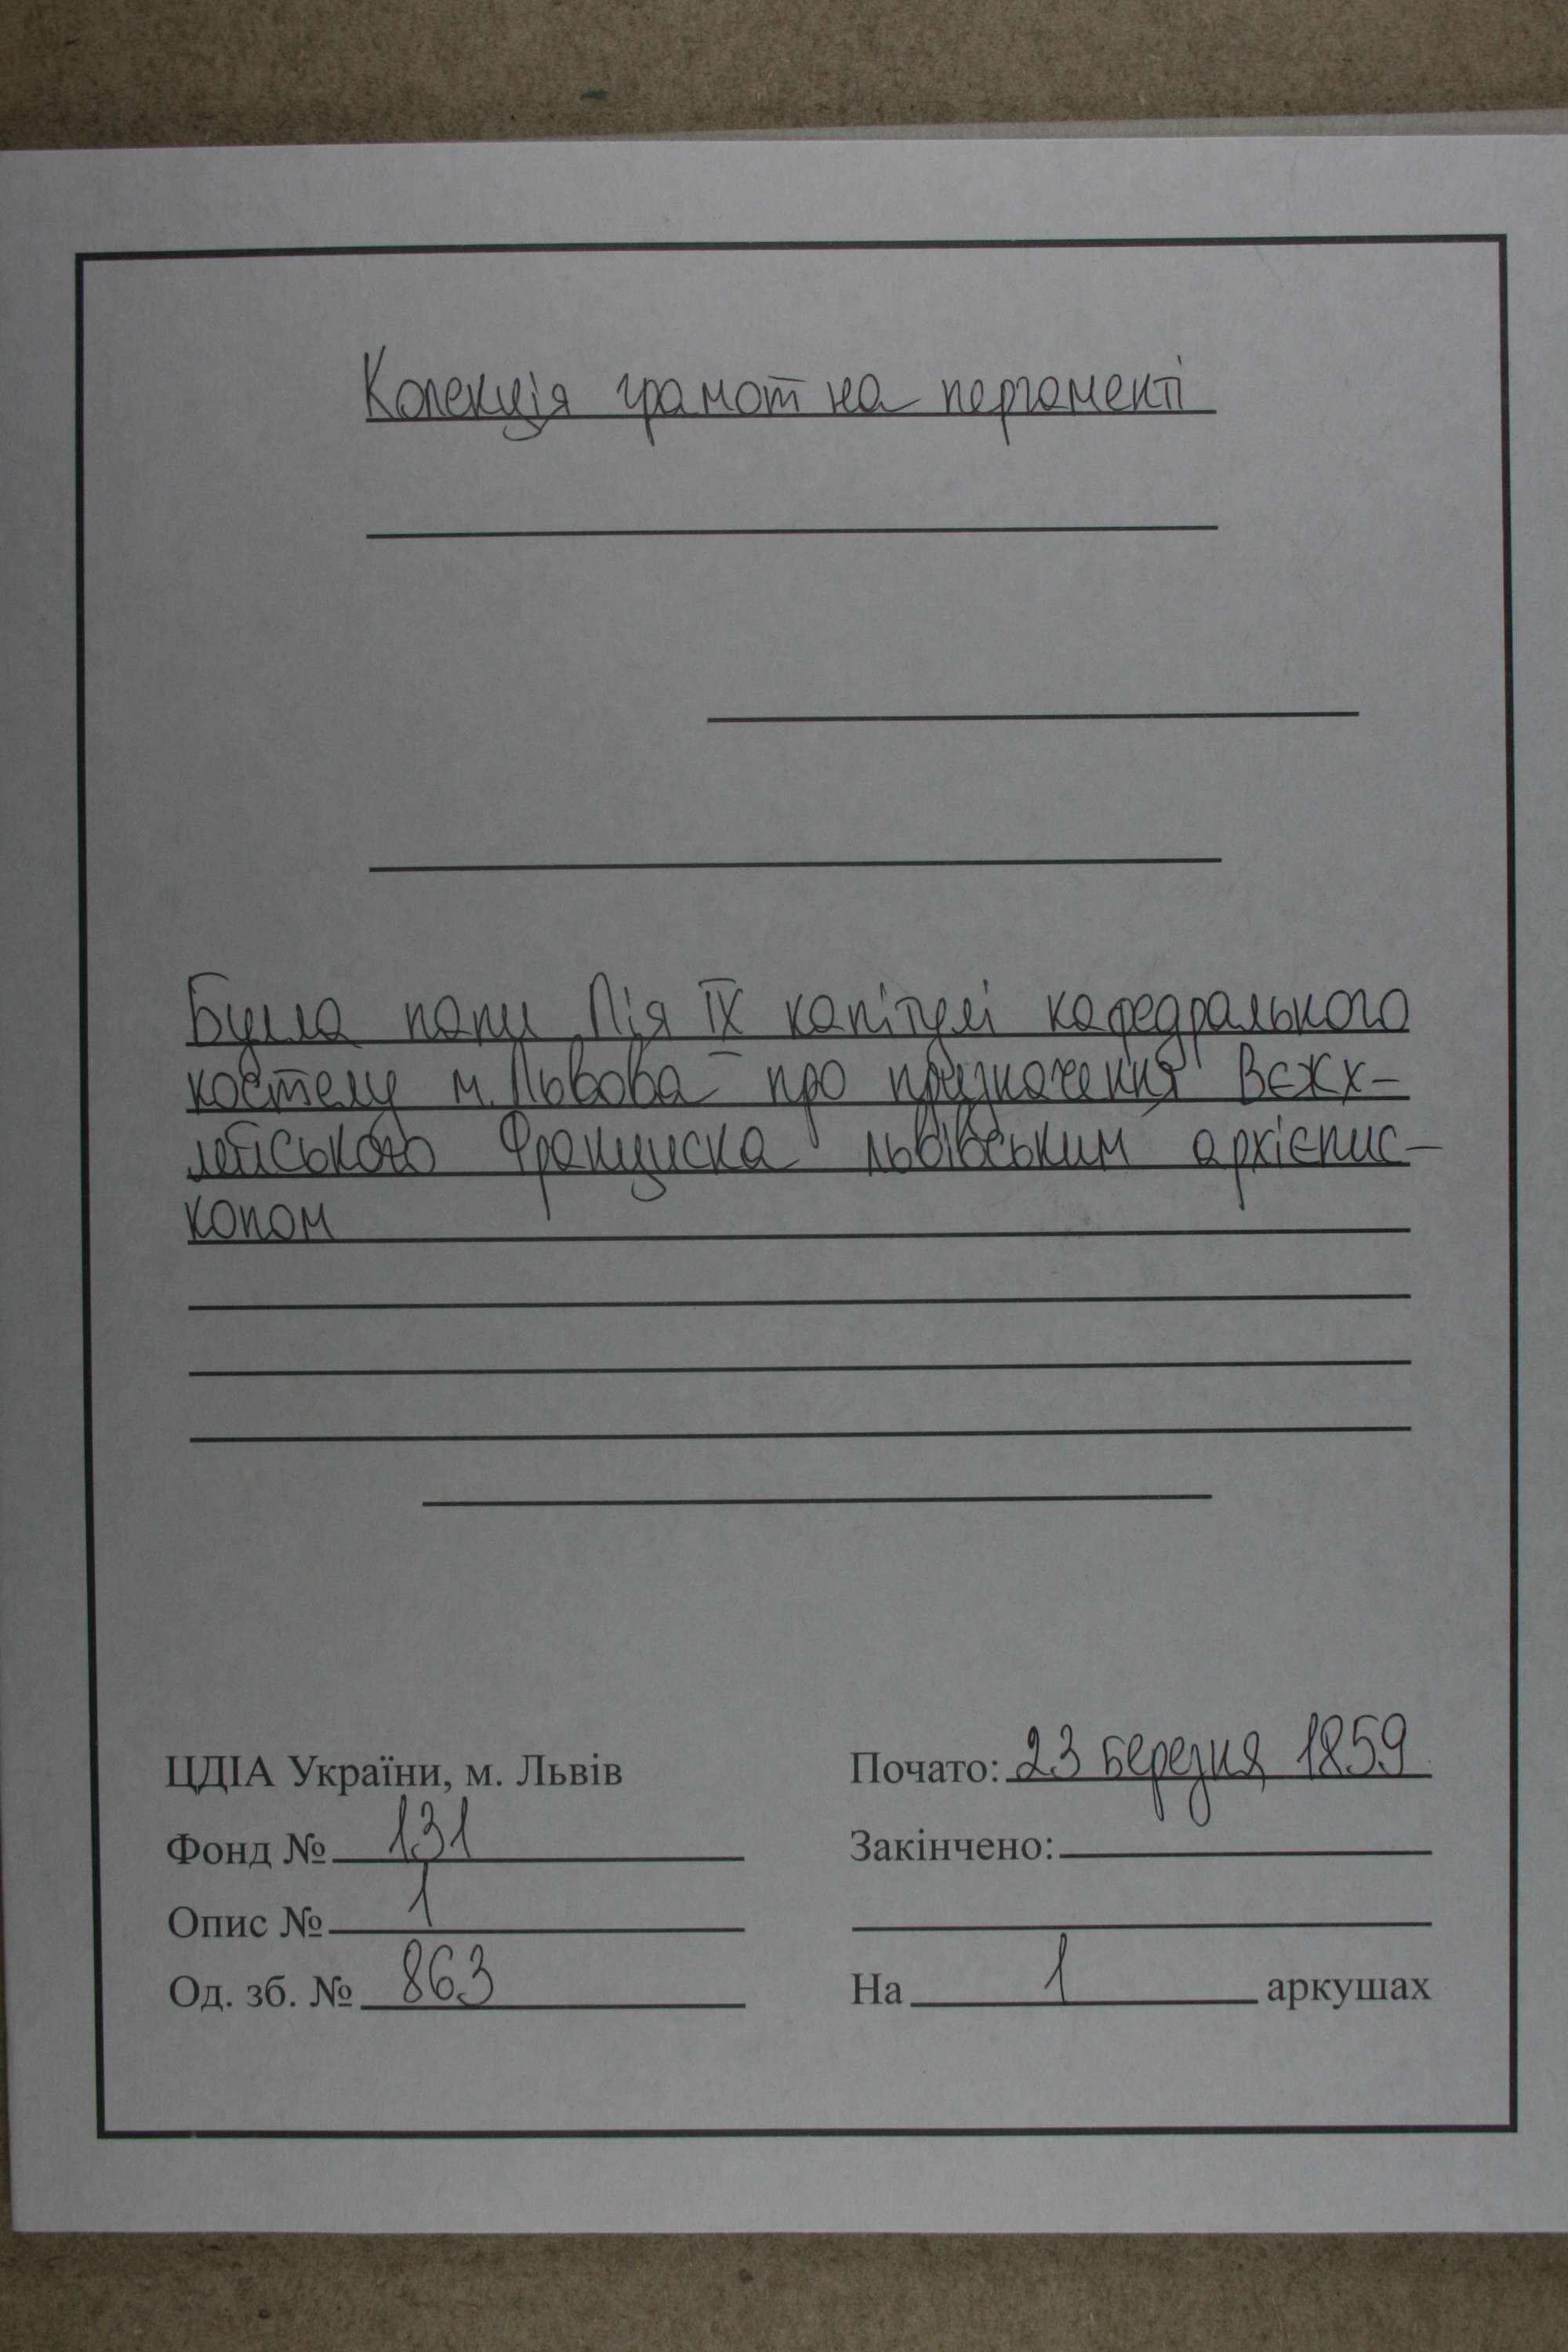 Колекція грамот на пергаменті
Булла папи Пія ІХ капітулі кафедрального
костелу м. Львова про призначення Вєжх-
лейського Францішка львівським архієпис-
копом
ЦДІА України, м. Львів
Фонд № 131
Опис № 1
Од. зб. № 863
Почато: 23 березня 1859
Закінчено:
На 1 аркушах